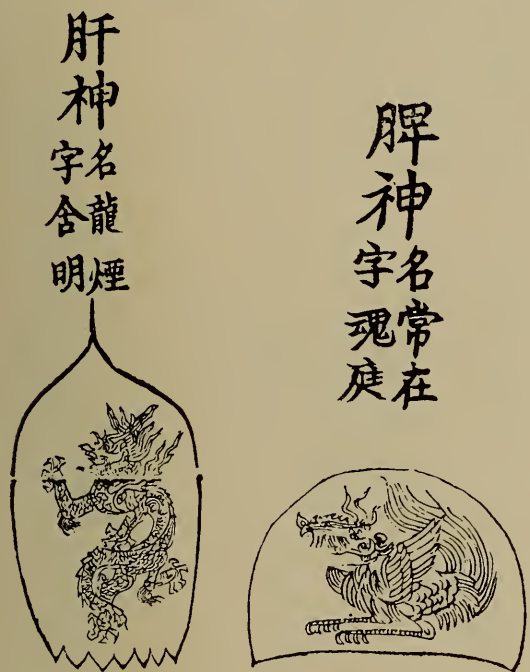 脾神
名常在
字魂庭
肝神
名龍煙
字含明